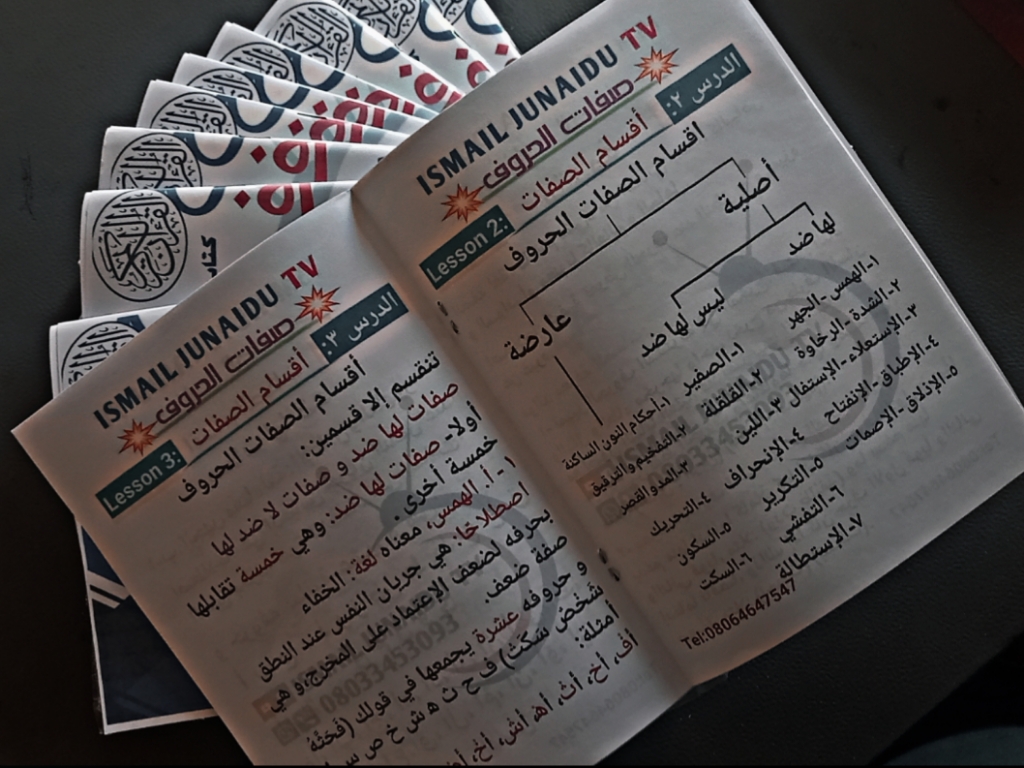 ISMAIL JUNAIDU TV
صفات الحروف
Lesson 2: أقسام الصفات الدرس ٢:
اقسام الصفات الحروف
أصلية
عارضة
لها ضد
ليس لها ضد
١-الهمس-الجهر
٢-الشدة-الرخاوة
٣-الإستعلاء-الإستفال
٤-الإطباق-الإنفتاح
٥-الإذلاق-الإصمات
١-الصفير
٢-القلقلة
٣-اللين
٤-الإنحراف
٥-التكرير
٦-التفشي
٧-الإستطالة
١.أحكام النون الساكنة
٢-التفخيم والترقيق
٣-المد والقصر
٤-التحريك
٥-السكون
٦-السكت
Tel:08064647547
ISMAIL JUNAIDU TV
صفات الحروف
Lesson 3: أقسام الصفات الدرس ٣:
أقسام الصفات الحروف
تنقسم إلا قسمين:
صفات لها ضد و صفات لا ضد لها
أولا- صفات لها ضد: وهي خمسة تقابلها
خمسة أخرى.
١- أ. الهمس، معناه لغة: الخفاء
اصطلاحا: هي جريان النفس عند النطق
بحرفه لضعف الاعتماد على المخرج، و هي
صفة ضعف.
و حروفه عشرة يجمعها في قولك (فَحَثَّهُ
شَخْصٌ سَكَتَ) ف ح ث ه ش خ ص س
أمثلة:
أف، أح، أث، أه، أش، أخ،
08033453093